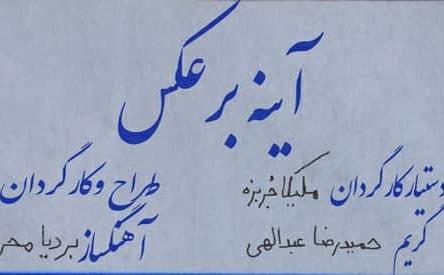 آینه بر عکس
دستیار کارگردان ملیکا جُربزه طراح و کارگردان
گریم حمیدرضا عبدالهی آهنگساز بردیا محر